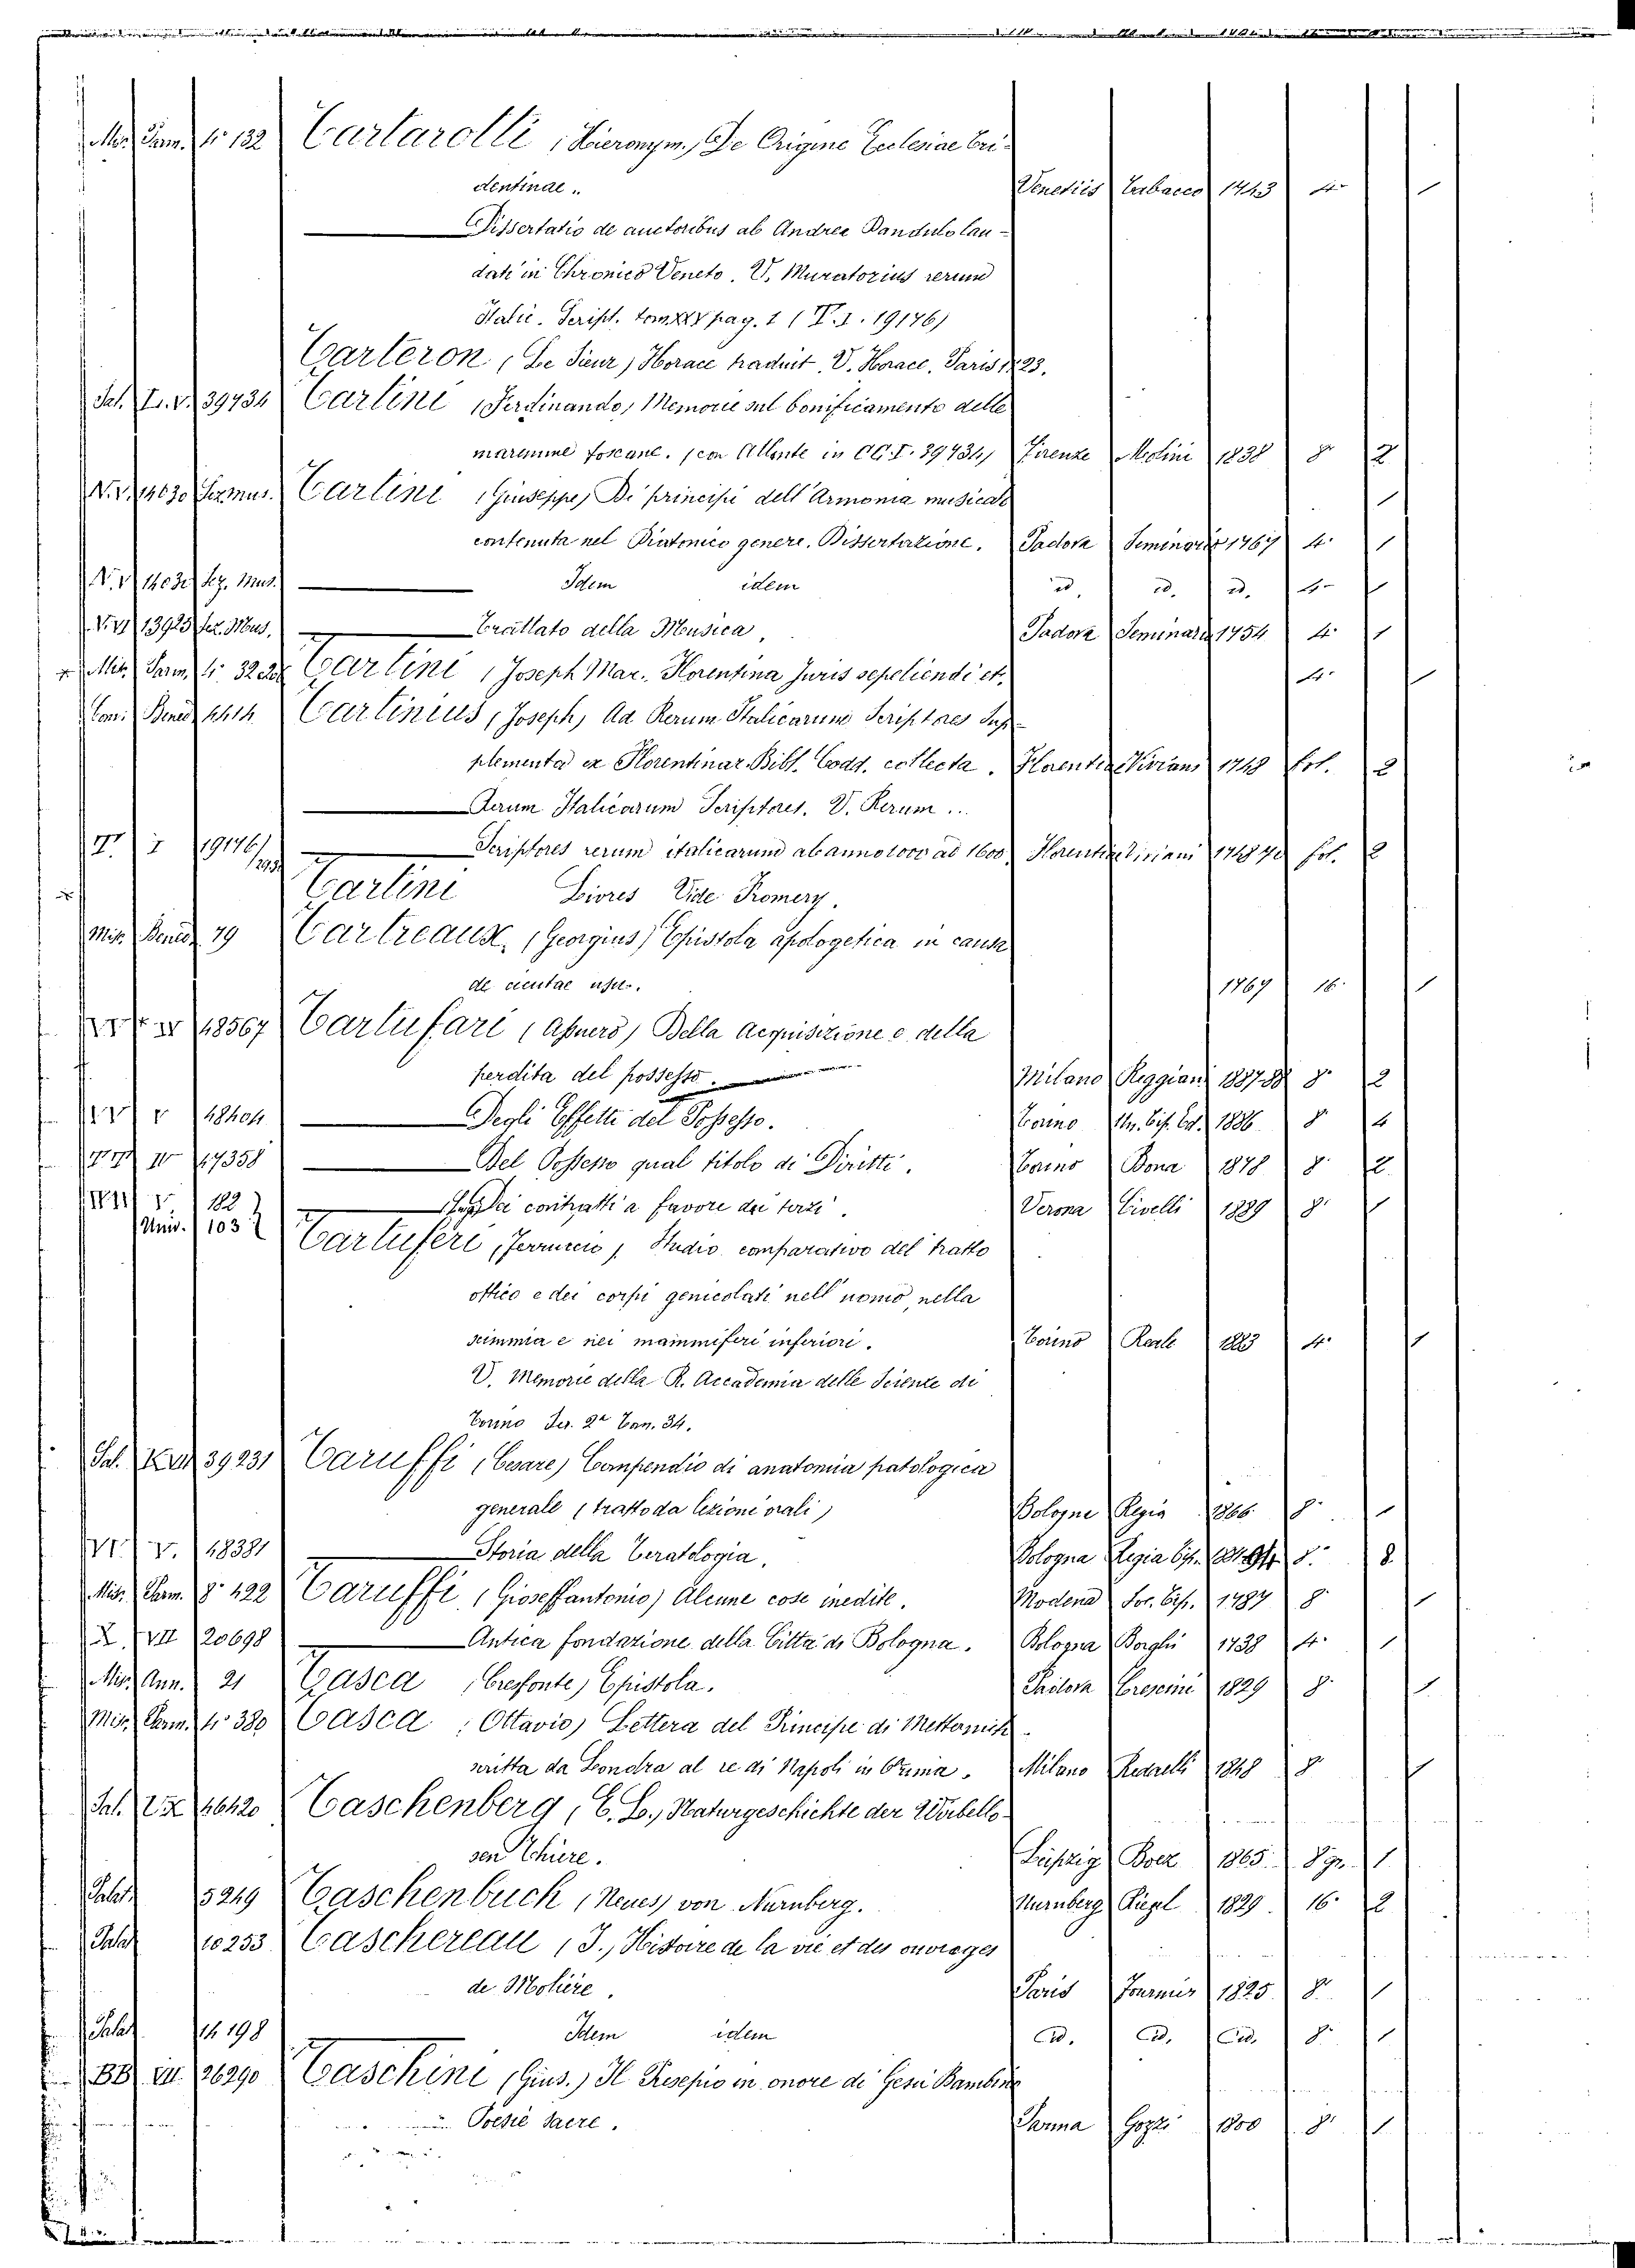 Mis. Parm. 4° 132 Tartarotti, (Hieronym.) De Origine Ecclesiae Tri-
dentinae. Venetiis 1743 4° 1
Dissertatio de auctoribus ab Andrea Dandulo lau-
dati in Chronico Veneto. V. Muratorius rerum
Italic. Script. tom XXV pag. 1 (T. I. 19176)
Tarteron, (Le Sieur) Horace traduit. V. Horace. Paris 1723.
Sal. L. V. 39734 Tartini (Ferdinando) Memorie sul bonificamento delle
maremme toscane. (con Atlante in CC. I. 39734) Firenze Molini 1838 8° 2
N. V. 14030 Sez. mus. Tartini (Giuseppe) De' principi dell'Armonia musicale
contenuta nel Diatonico genere. Dissertazione. Padova Seminario 1767 4° 1
N. V. 14030 Sez. Mus. Idem idem id. id. id. 4° 1
V. VI 13925 Sez. Mus. Trattato della Musica, Padova Seminario 1754 4° 1
Mis. Parm. 4° 32 Tartini (Joseph Mar. Florentina Juris sepeliendi et. 4° 1
Com. Bened. Tartinius (Joseph) Ad Rerum Italicarum Scriptores Sup-
plementa ex Florentinar. Bibl. Codd. collecta. Florentiae Viviani 1748 fol. 2
Rerum Italicarum Scriptores. V. Rerum...
T. I 19176 Scriptores rerum italicarum ab anno 1000 ad 1600 Florentiae Viviani 1748 70 fol. 2
Tartini Livres Vide Promery.
Mis. Bened. 79 Tartreaux, (Georgius) Epistola apologetica in causa
de cicutae usu. 1769 16° 1
18567 Tartufari (Assuero) Della acquisizione e della
perdita del possesso. Milano Reggiani 1887-88 8° 2
18404 Degli Effetti del Possesso. Torino Un. Tip. Ed. 1886 8° 4
17358 Del Possesso qual titolo di Diritti. Torino Bona 1878 8° 2
182 Dei contratti a favore dei terzi. Verona Civelli 1889 8° 1
Univ. 103 Tartuferi, Ferruccio, Studio comparativo del tratto
ottico e dei corpi genicolati nell'uomo, nella
scimmia e nei mammiferi inferiori. Torino Reale 1883 4° 1
V. Memorie della R. Accademia delle Scienze di
Torino Ser. 2ª Tom. 34.
Sal. 39231 Taruffi, (Cesare) Compendio di anatomia patologica
generale (tratto da lezioni orali) Bologna Regia 1866 8° 1
V. 18381 Storia della Teratologia. Bologna Regia Tip. 8° 8
Mis. Parm. 8° 422 Taruffi, (Gioseffantonio) Alcune cose inedite. Modena Soc. Tip. 1787 8° 1
X. VII 20698 Antica fondazione della Città di Bologna. Bologna Borghi 1738 4° 1
Mis. Ann. 21 Tasca, (Cresfonte) Epistola. Padova Crescini 1829 8° 1
Mis. Parm. 4° 380 Tasca (Ottavio) Lettera del Principe di Metternich
scritta da Londra al re di Napoli in Rima. Milano Redaelli 1848 8° 1
Sal. 46420 Taschenberg, (E. L.) Naturgeschichte der Wirbello-
sen Thiere. Leipzig 1865 8 gr. 1
Palat. 5249 Taschenbuch (Neues) von Nurnberg. Nurnberg Riegel 1829 16° 2
Palat. 10253 Taschereau (J.) Histoire de la vie et des ouvrages
de Molière. Paris Tournier 1825 8° 1
Palat. 14198 Idem idem id. id. id. 8° 1
BB. VII. 26290 Taschini (Gius.) Il Presepio in onore di Gesù Bambino
Poesie Sacre. Parma Gozzi 1800 8° 1